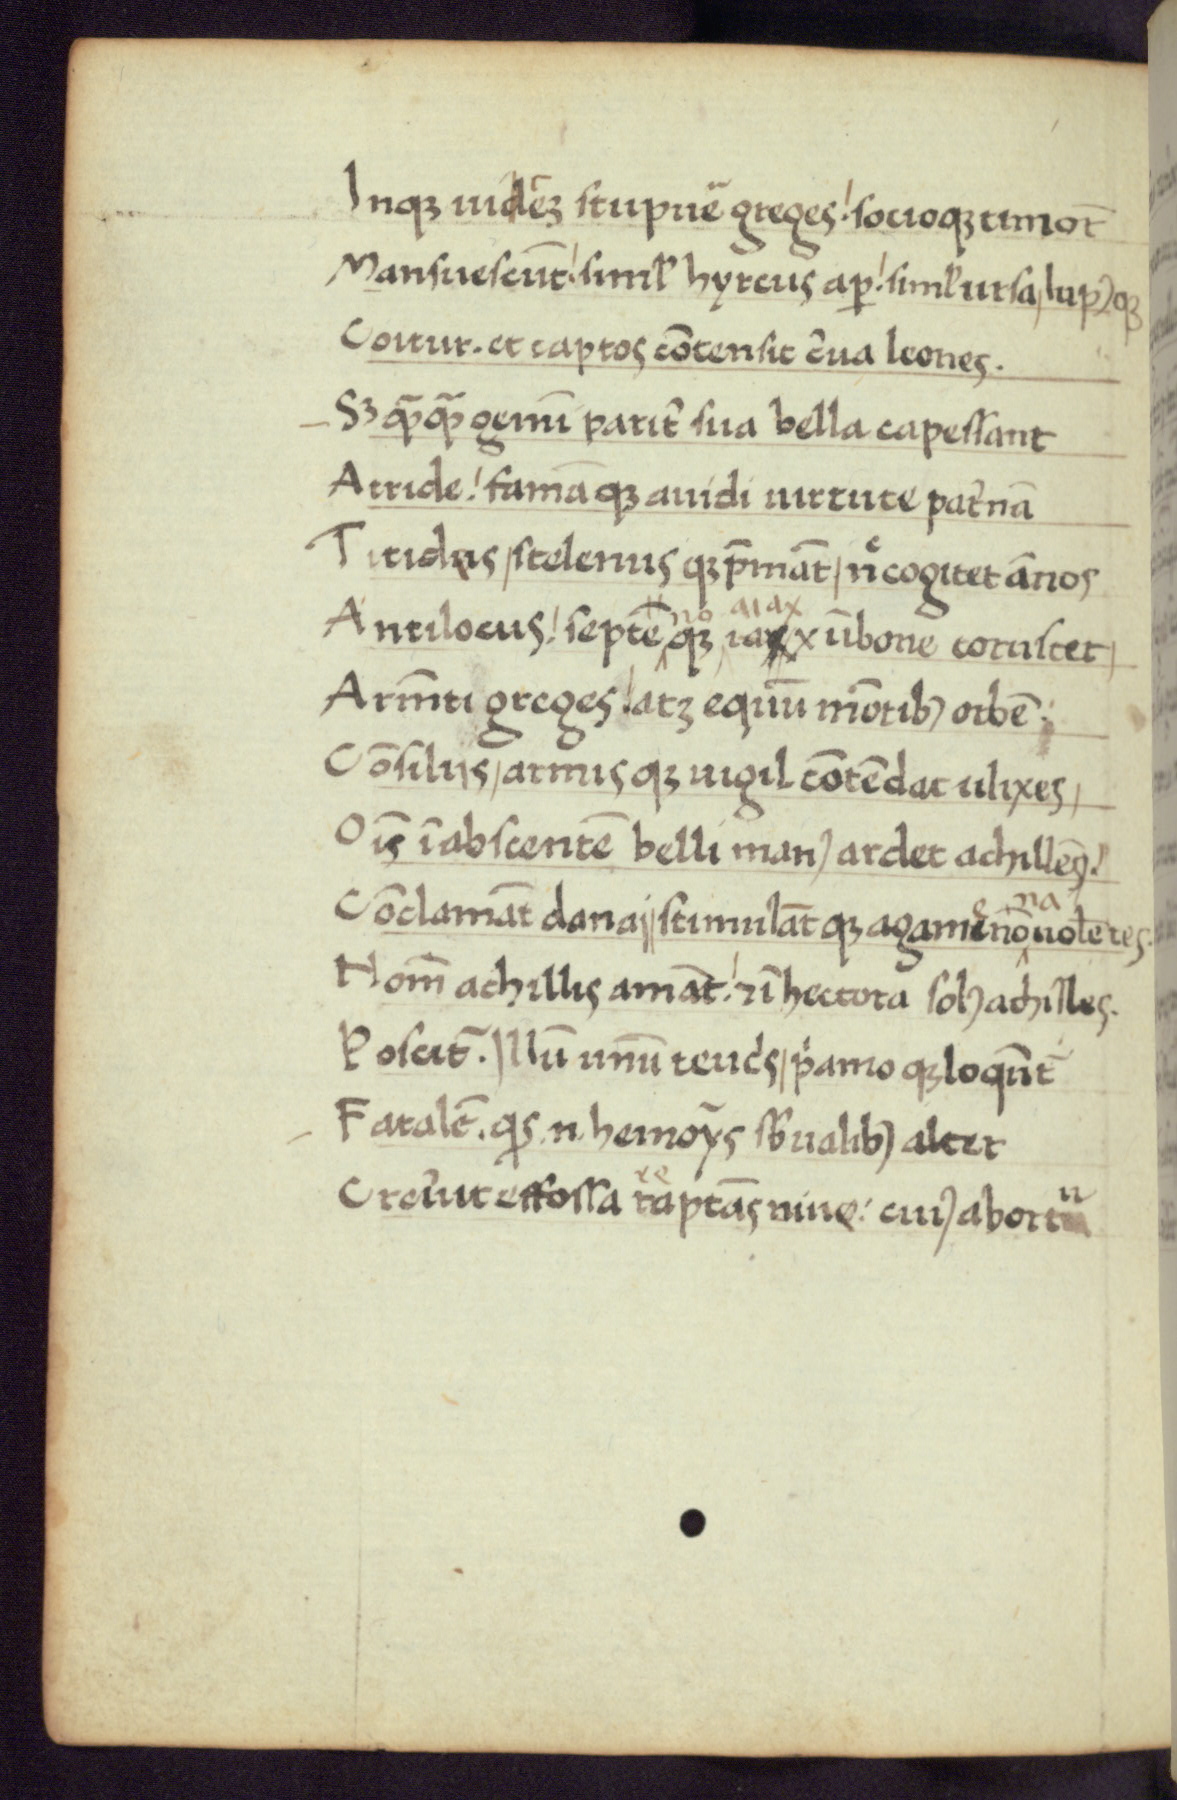 Inqꝫ uidēꝫ stupuē greges! socioqꝫ timoꝛ̄
Mansuescūt! simľ hyrcus ap̲! simľ ursa, lup᾽qꝫ
Coitur. et captos cōtensit c̄ua leones.
Sꝫ qᷓqᷓ gemī parit̄ sua bella capessant
Atride! famāqꝫ auidi uirtute pat̄nā
Titides, stelenus qꝫ p̄māt, nͨ cogitet ānos
Antilocus! septēno qꝫ aiax ūbone coruscet,
Arm̄ti greges! atꝫ equūu mōtib᾽ orbē:
Cōsiliis, armisqꝫ uigil cōtēdat ulixes,
Oīs īabscentē belli man᾽ ardet achillē!
Cōclamāt danai, stimulātqꝫ agamenōna uolētes.
Nom̄ achillis amāt! ⁊ ī hectora sol᾽ achilles.
Poscit̄. Illū unū teuc̄s, p̊amo qꝫ loqūt̄
Fatalē. qͥs .n. hemoỹs sb̄ualib᾽ alter
Creūut effossa reptās niue: cui᾽ abortū